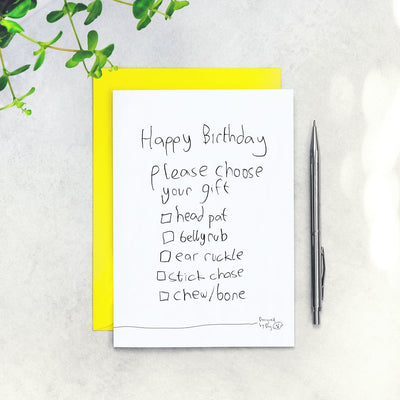 Happy Birthday
please choose
your gift
head pat
belly rub
ear ruckle
stick chase
chew/bone
Designed
by